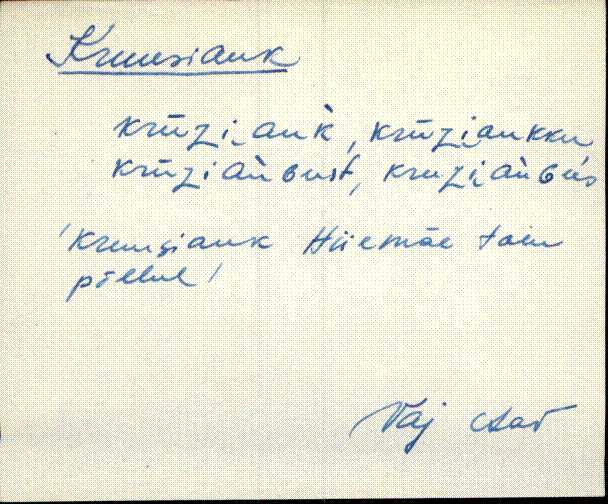 Kruusiauk
krūzi̮auk̀, krūzi̮aukku
krūziàu͔ɢust, krūzi̮àuɢus
'Kruusiauk Hiiemäe talu
põllul'
Vaj Aav